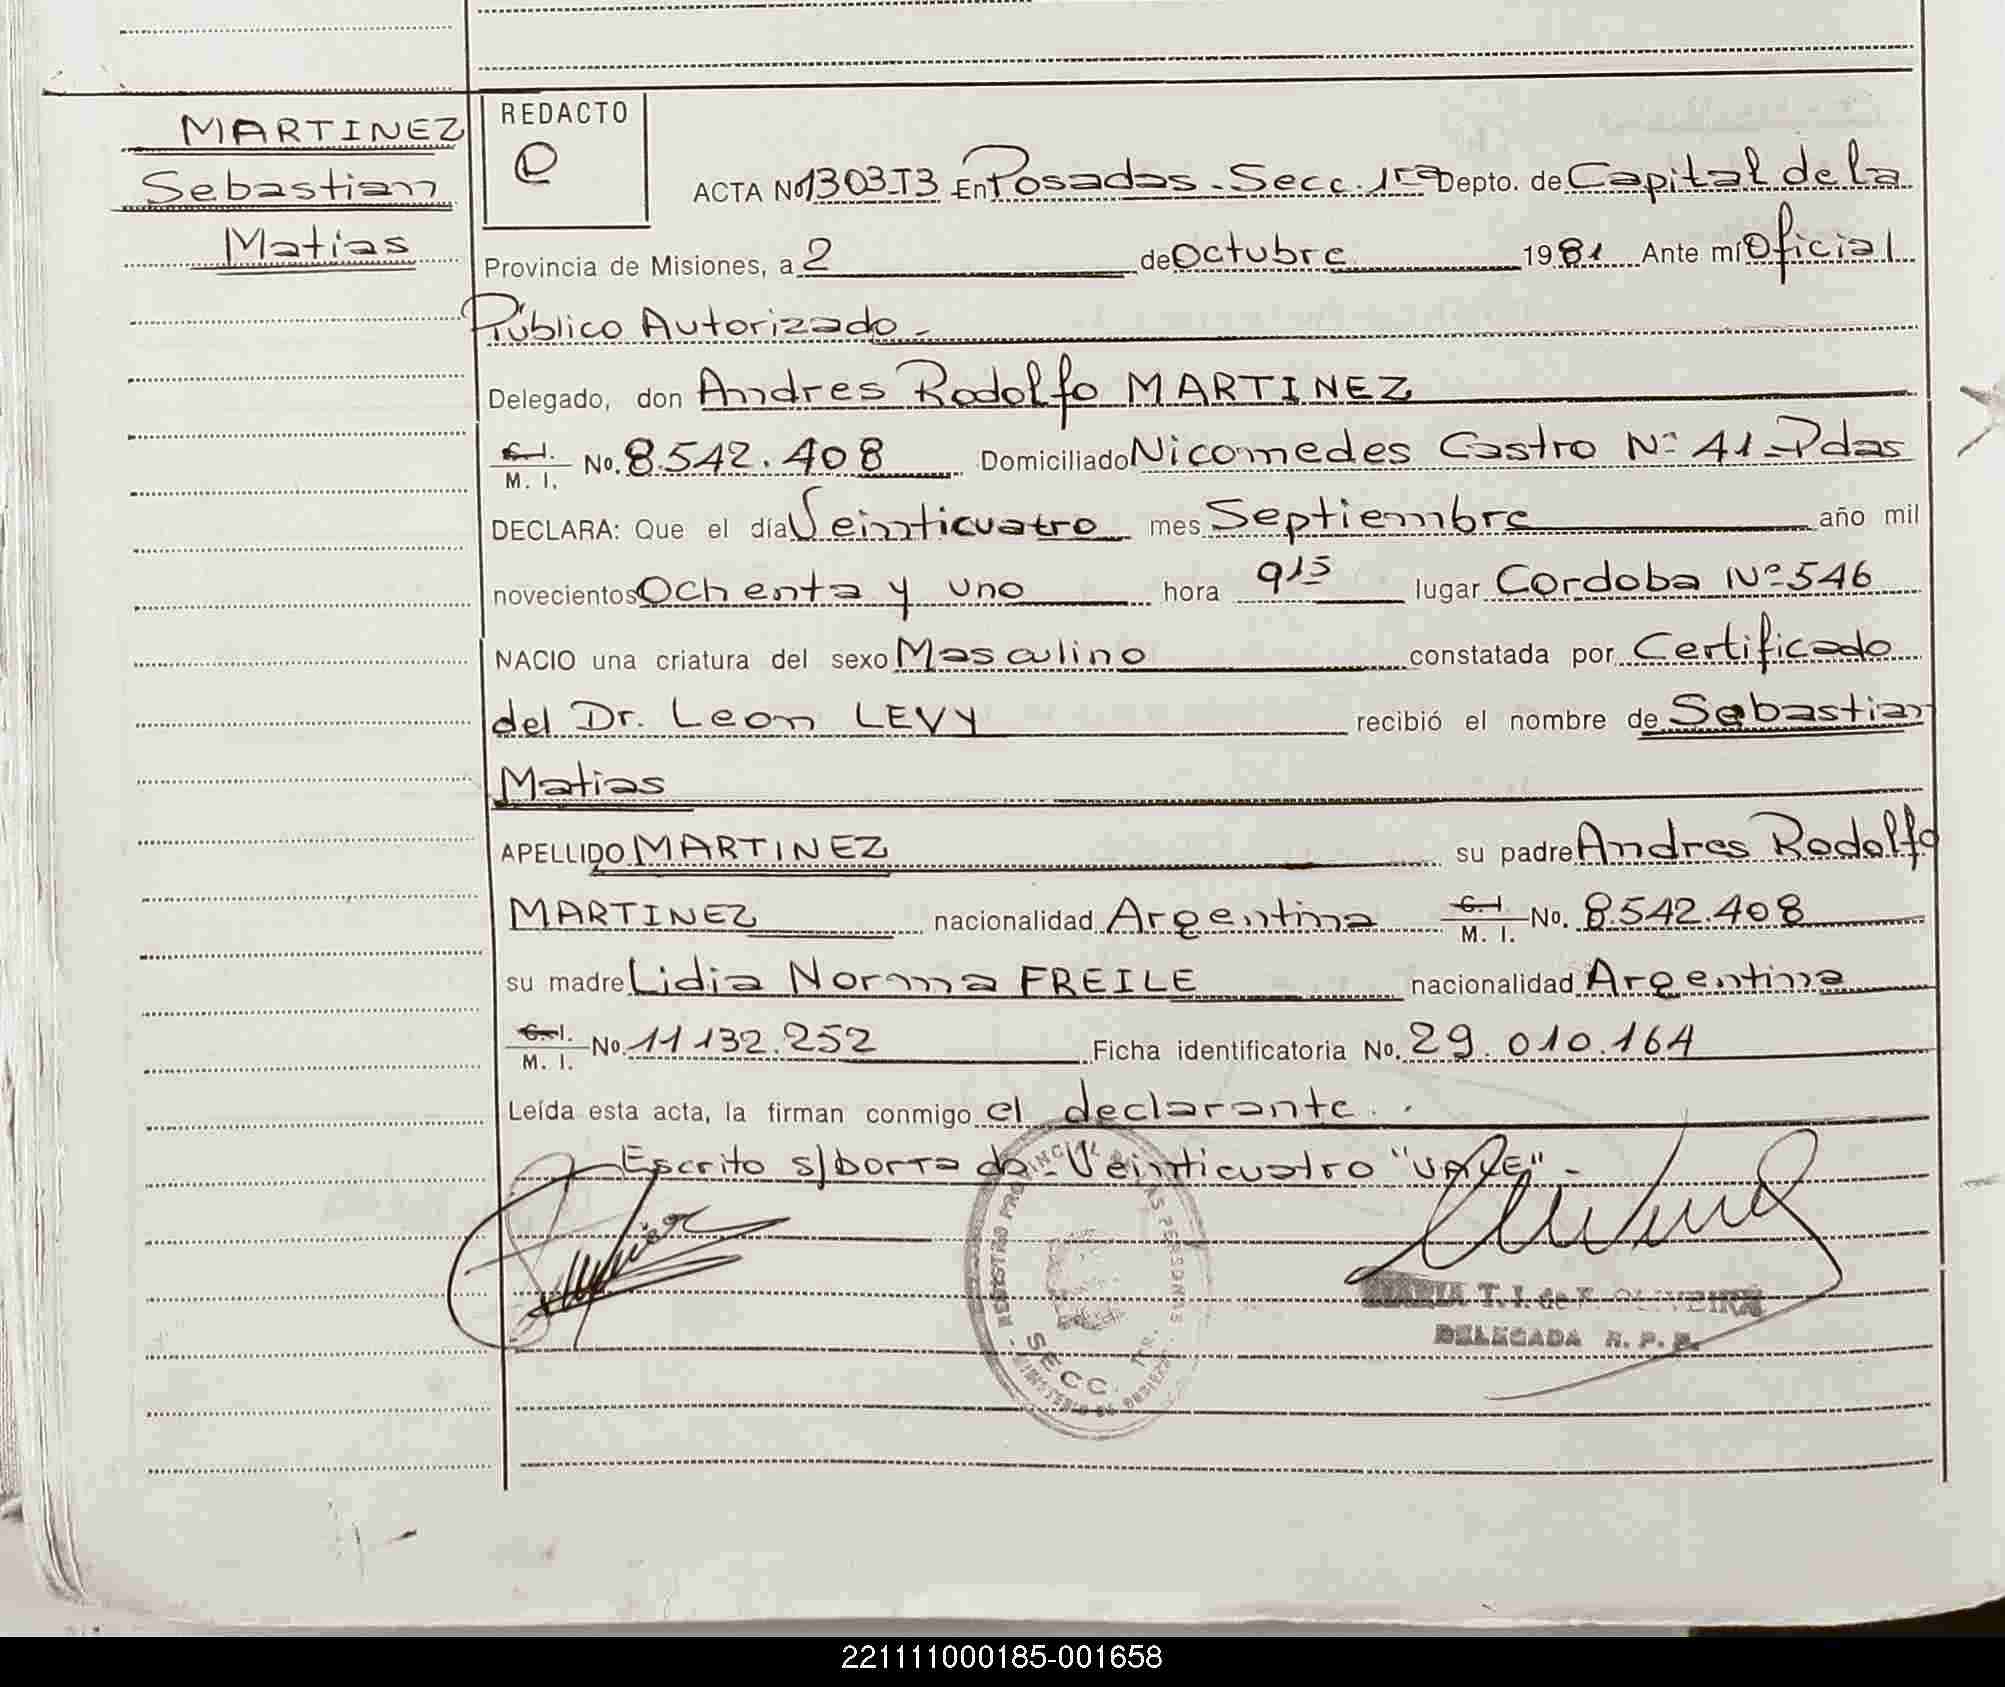 MARTINEZ
Sebastian
Matías
REDACTO
e
ACTA No 1303-T3 En Posadas - Secc. 1ra Depto. de Capital de la
Provincia de Misiones, a 2 de Octubre 1981 Ante mí Oficial
Público Autorizado -
Delegado, don Andres Rodolfo MARTINEZ
C. I.
M. I. No. 8.542.408 Domiciliado Nicomedes Castro Nº 41 - Pdas
DECLARA: Que el día Veinticuatro mes Septiembre año mil
novecientos Ochenta y uno hora 9 15 lugar Cordoba Nº 546
NACIO una criatura del sexo Masculino constatada por Certificado
del Dr. Leon LEVY recibió el nombre de Sebastian
Matias
APELLIDO MARTINEZ su padre Andres Rodolfo
MARTINEZ nacionalidad Argentina C. I.
M. I. No. 8.542.408
su madre Lidia Norma FREILE nacionalidad Argentina
C. I.
M. I. No. 11 132.252 Ficha identificatoria No. 29.010.164
Leída esta acta, la firman conmigo el declarante.
Escrito s/borrado - Veinticuatro "VALE" -
REGISTRO PROVINCIAL DE LAS PERSONAS
SECC. 1ra.
MINISTERIO DE GOBIERNO
MARIA T. I. de F. OLIVEIRA
DELEGADA R. P. P.
221111000185-001658